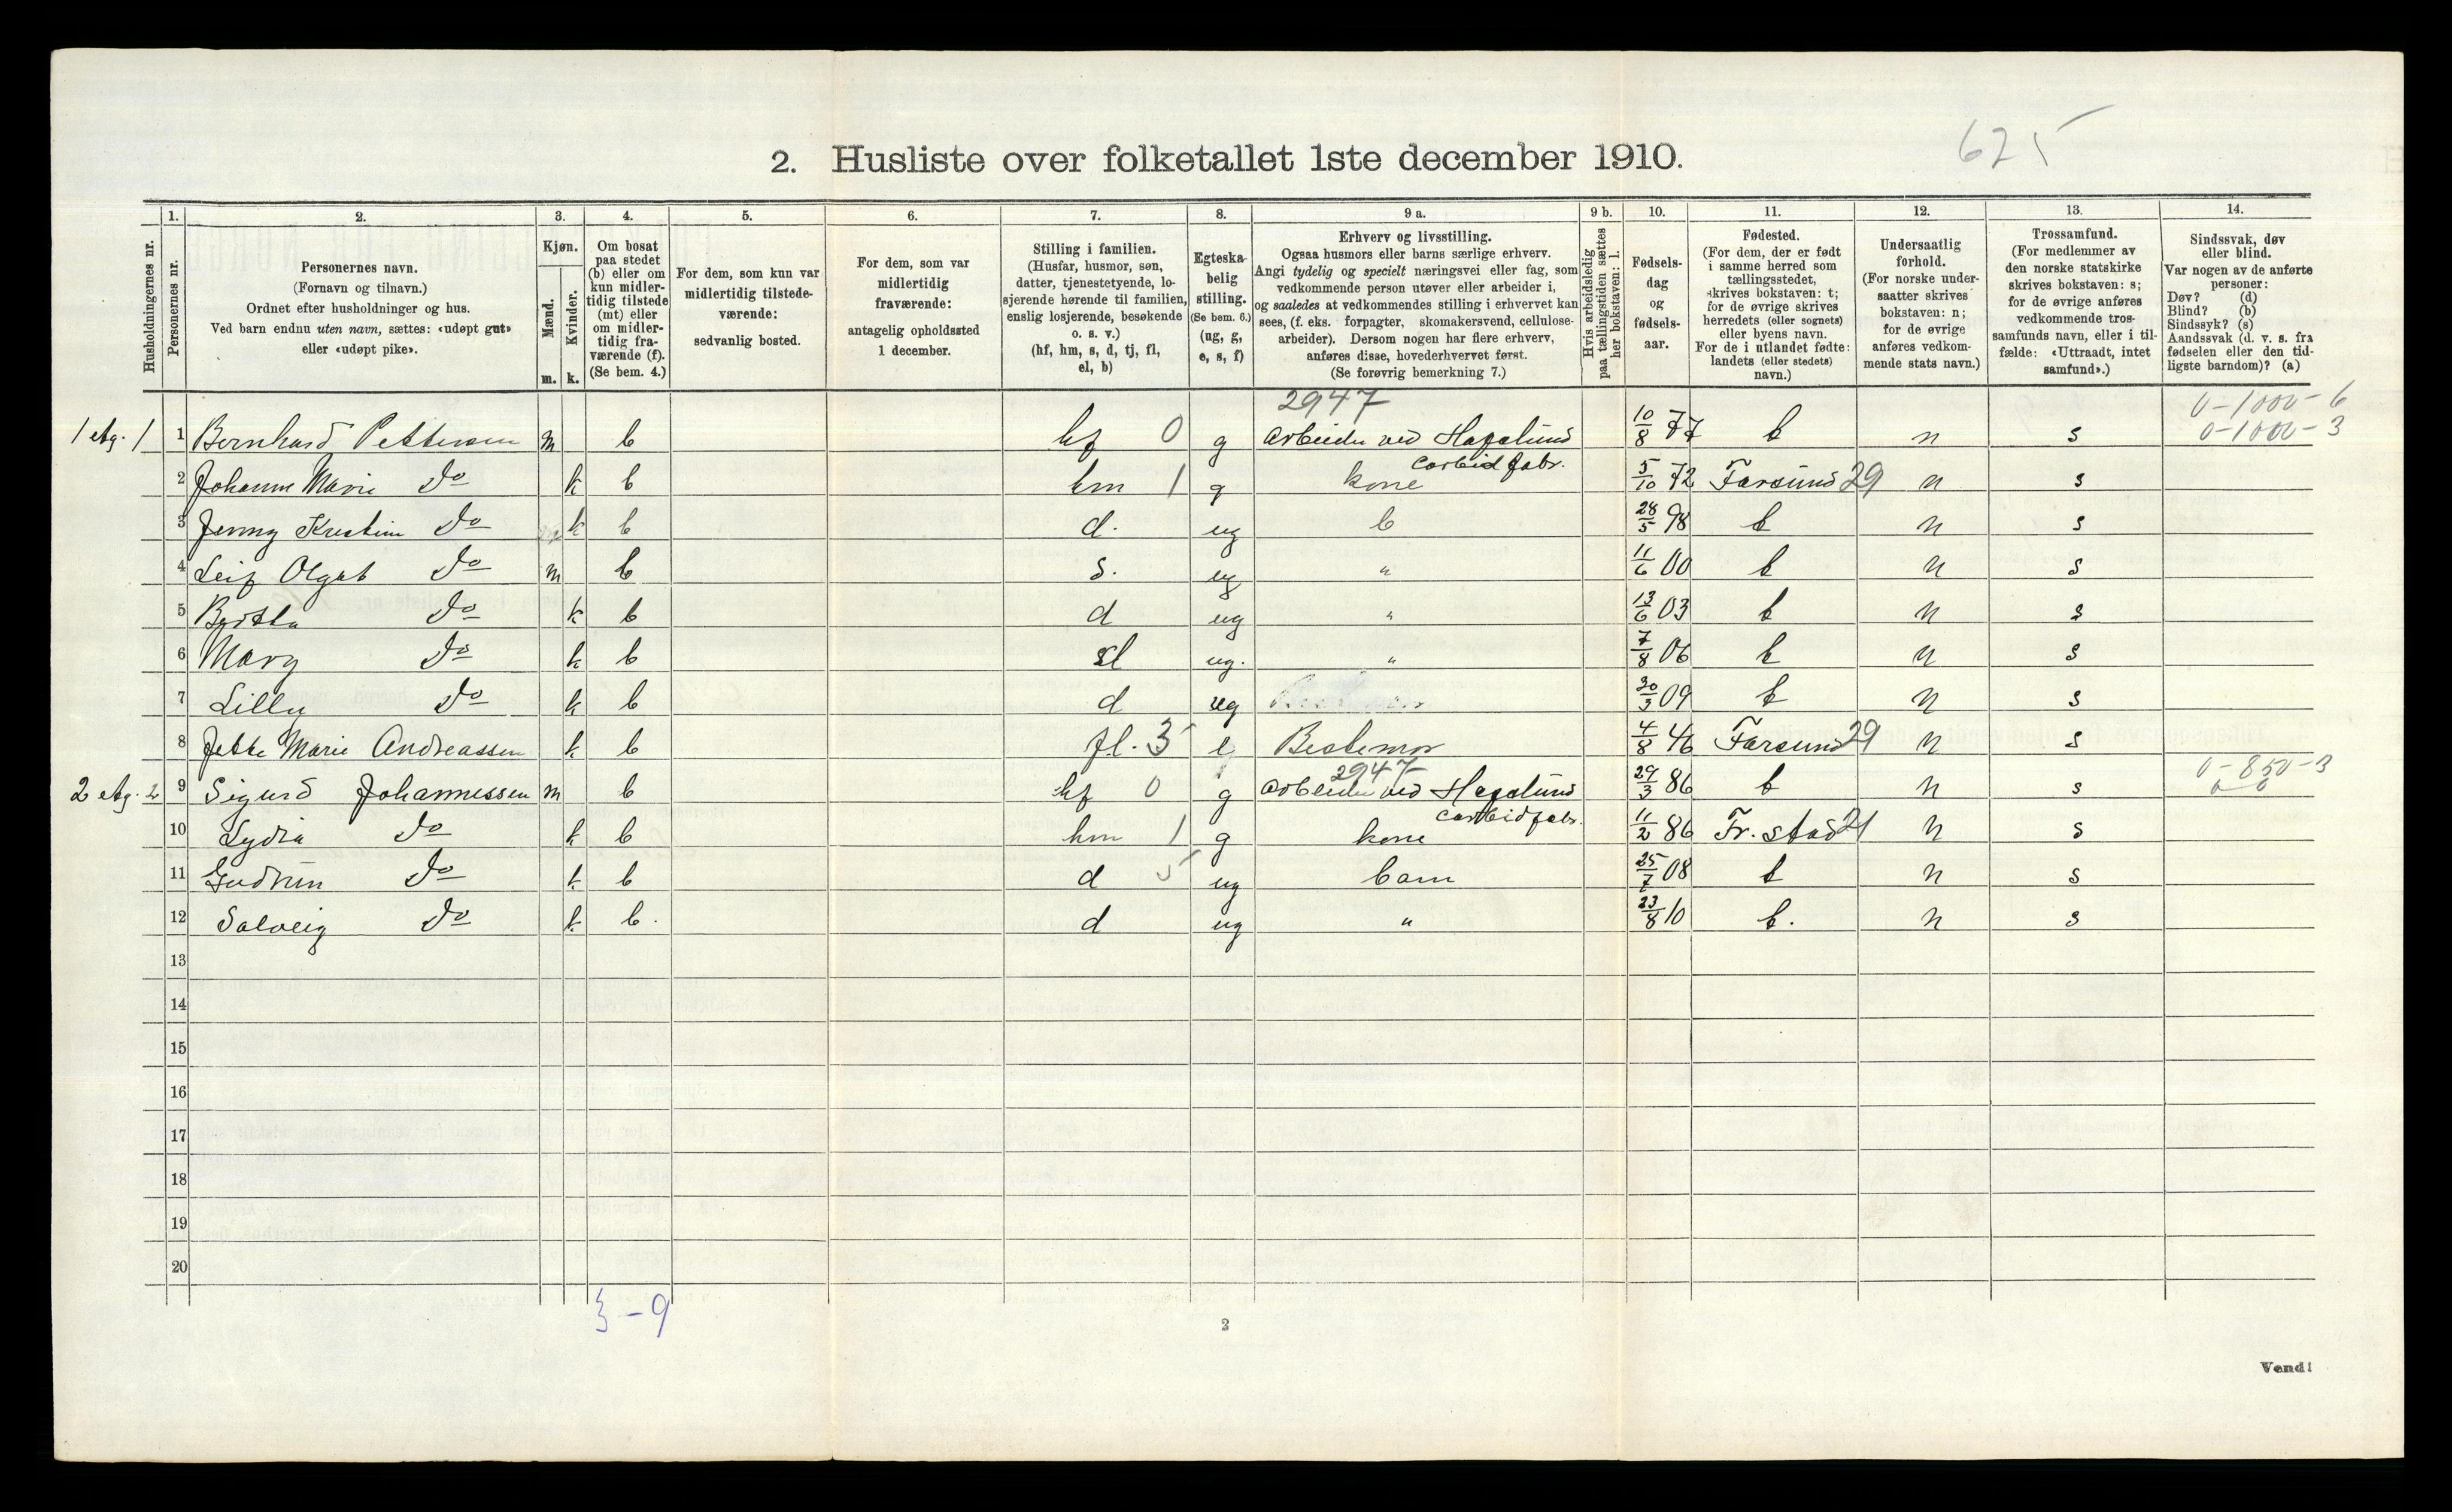 625
2. Husliste over folketallet 1ste december 1910.
Husholdningernes nr.
1. Personernes nr.
2. Personernes navn.
(Fornavn og tilnavn.)
Ordnet efter husholdninger og hus.
Ved barn endnu uten navn, sættes: «udøpt gut»
eller «udøpt pike».
3. Kjøn.
Mænd. m.
Kvinder. k.
4. Om bosat
paa stedet
(b) eller om
kun midler-
tidig tilstede
(mt) eller
om midler-
tidig fra-
værende (f).
(Se bem. 4.)
5. For dem, som kun var
midlertidig tilstede-
værende:
sedvanlig bosted.
6. For dem, som var
midlertidig
fraværende:
antagelig opholdssted
1 december.
7. Stilling i familien.
(Husfar, husmor, søn,
datter, tjenestetyende, lo-
sjerende hørende til familien,
enslig losjerende, besøkende
o. s. v.)
(hf, hm, s, d, tj, fl,
el, b)
8. Egteska-
belig
stilling.
(Se bem. 6.)
(ug, g,
e, s, f)
9 a. Erhverv og livsstilling.
Ogsaa husmors eller barns særlige erhverv.
Angi tydelig og specielt næringsvei eller fag, som
vedkommende person utøver eller arbeider i,
og saaledes at vedkommendes stilling i erhvervet kan
sees, (f. eks. forpagter, skomakersvend, cellulose-
arbeider). Dersom nogen har flere erhverv,
anføres disse, hovederhvervet først.
(Se forøvrig bemerkning 7.)
9 b. Hvis arbeidsledig
paa tællingstiden sættes
her bokstaven: l.
10. Fødsels-
dag
og
fødsels-
aar.
11. Fødested.
(For dem, der er født
i samme herred som
tællingsstedet,
skrives bokstaven: t;
for de øvrige skrives
herredets (eller sognets)
eller byens navn.
For de i utlandet fødte:
landets (eller stedets)
navn.)
12. Undersaatlig
forhold.
(For norske under-
saatter skrives
bokstaven: n;
for de øvrige
anføres vedkom-
mende stats navn.)
13. Trossamfund.
(For medlemmer av
den norske statskirke
skrives bokstaven: s;
for de øvrige anføres
vedkommende tros-
samfunds navn, eller i til-
fælde: «Uttraadt, intet
samfund».)
14. Sindssvak, døv
eller blind.
Var nogen av de anførte
personer:
Døv? (d)
Blind? (b)
Sindssyk? (s)
Aandssvak (d. v. s. fra
fødselen eller den tid-
ligste barndom)? (a)
2947 0-1000-6
1 etg. 1 1 Bernhard Pettersen m b hf 0 g arbeider ved Hafslund 10/8 77 t n s 0-1000-3
carbid fabr.
2 Johanne Marie Do k b hm 1 g kone 5/10 72 Farsund 29 n s
3 Jenny Kristine Do k b d. ug b 28/5 98 t n s
4 Leif Olgat Do m b s. ug " 11/6 00 t n s
5 Bertha Do k b d ug " 13/6 03 t n s
6 Mary Do k b d ug. " 7/8 06 t n s
7 Lilly Do k b d ug 30/3 09 t n s
8 Jette Marie Andreassen k b fl. 35 e Bestemor 4/8 46 Farsund 29 n s
2947 0-850-3
2 etg. 2 9 Sigurd Johannessen m b hf 0 g arbeider ved Hafslund 29/3 86 t n s 0-0
carbidfabr.
10 Lydia Do k b hm 1 g kone 11/2 86 Fr. stad 21 n s
11 Gudrun Do k b d 5 ug barn 25/7 08 t n s
12 Solveig Do k b. d ug " 23/8 10 t. n s
13
14
15
16
17
18
19
20
3-9
2
Vend!